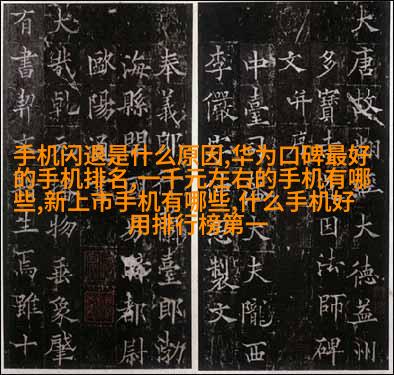 手机闪退是什么原因,华为口碑最好
的手机排名,一千元左右的手机有哪
些,新上市手机有哪些,什么手机好
用排行榜第一
大唐故大德益州
多寶因法師碑
文并
中臺司大夫隴西
李儼製文
奉義郎臺郎渤
海縣開都尉
歐陽通
大哉乾元物垂象肇
有書契焉雖十